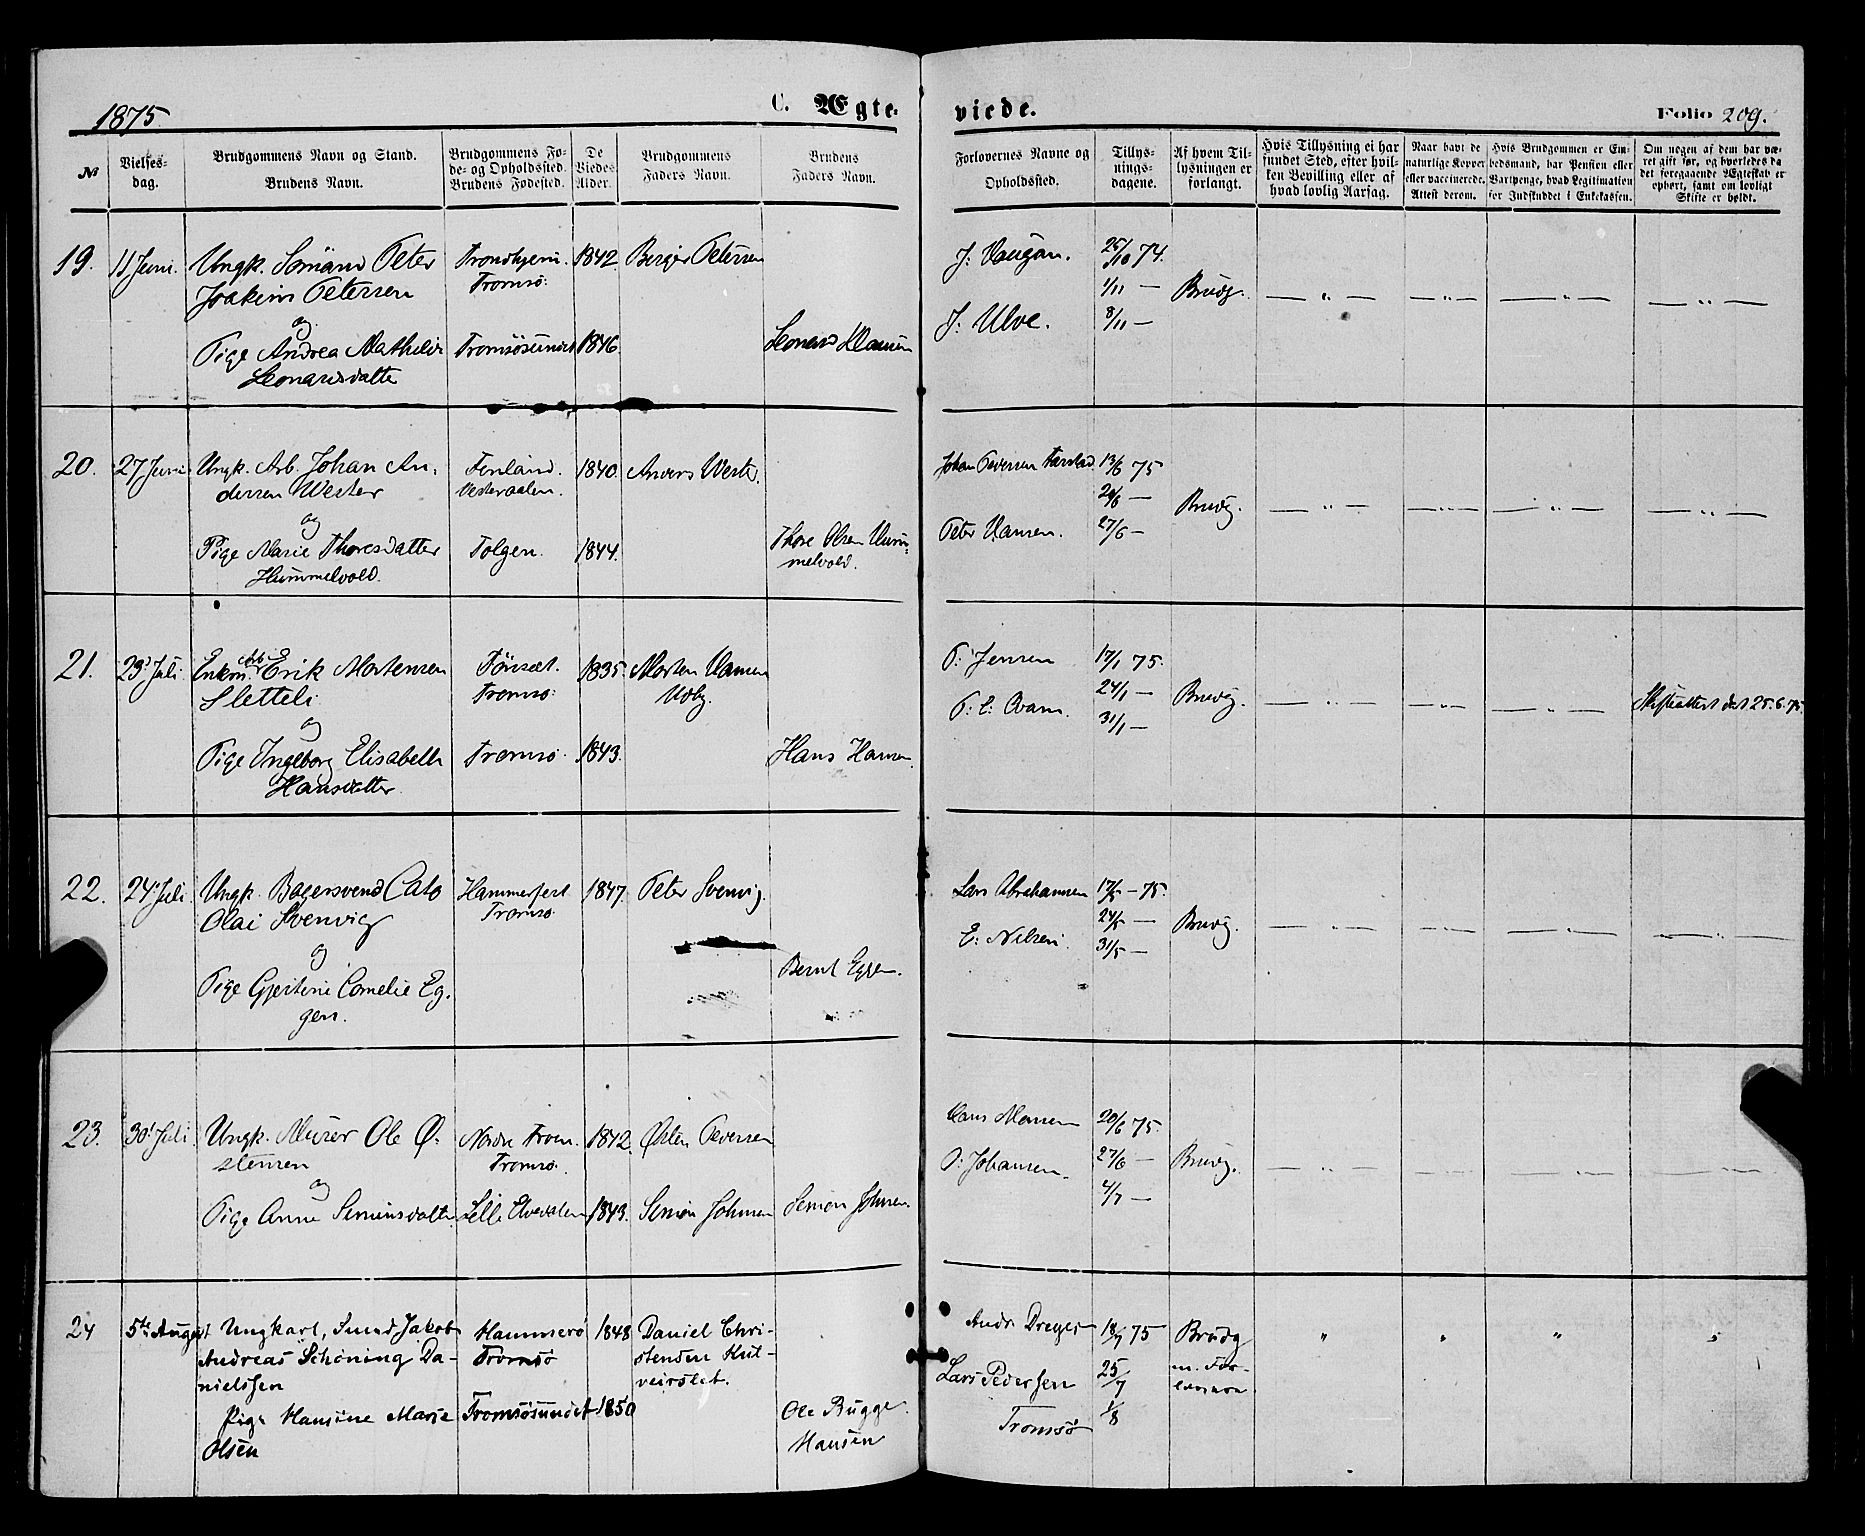 1875. C. Ægte-
viede. Folio 209.
№
Vielses-
dag.
Brudgommens Navn og Stand.
Brudens Navn.
Brudgommens Fø-
de- og Opholdssted.
Brudens Fødested.
De
Viedes
Alder.
Brudgommens
Faders Navn.
Brudens
Faders Navn.
Forlovernes Navne og
Opholdssted.
Tillys-
nings-
dagene.
Af hvem Til-
lysningen er
forlangt.
Hvis Tillysning ei har
fundet Sted, efter hvil-
ken Bevilling eller af
hvad lovlig Aarsag.
Naar havt de
naturlige Kopper
eller vaccinerede.
Attest derom.
Hvis Brudgommen er Em-
bedsmand, har Pension eller
Vartpenge, hvad Legitimation
for Indskuddet i Enkekassen.
Om nogen af dem har væ-
ret gift før, og hvorledes da
det foregaaende Ægteskab er
ophørt, samt om lovligt
Skifte er holdt.
19. 11 Juni. Ungk. Sømand Peter Trondhjem. 1842. Berger Petersen J: Haugan. 25/10 74.
Joakim Petersen Tromsø. 1/11 — Brudg. — " — — " — — " — — " —
og J: Ulve. 8/11 —
Pige Andrea Mathilde Tromsøsundet 1846. Leonard Hansen
Leonardsdatter
20. 27 Juni Ungk. Arb. Johan An- Finland. 1840. Anders Wester. Johan Pedersen Farstad. 13/6 75
dersen Wester Vesteraalen. 20/6 — Brudg. — " — — " — — " — — " —
og Peter Hansen. 27/6 —
Pige Marie Thoresdatter Tolgen. 1844. Thore Olsen Hum-
Hummelvold. melvold.
21. 23' Juli. Enkem. Arb. Erik Mortensen Tønset. 1835. Morten Hansen P: Jensen 17/1 75.
Sletteli Tromsø. Udby. P: E: Kvam. 24/1 — Brudg. — " — — " — — " — Skifteattest dat 25.6.75.
og 31/1 —
Pige Ingeborg Elisabeth Tromsø. 1843. Hans Hansen.
Hansdatter.
22. 24' Juli Ungk. Bagersvend Cato Hammerfest 1847. Peter Svenvig. Lars Abrahamsen 17/5 — 75.
Olai Svenvig Tromsø. E: Nilsen. 24/5 — Brudg. — " — — " — — " — — " —
og 31/5 —
Pige Gjertine Cornelie Eg- Bernt Eggen.
gen.
23. 30' Juli. Ungk. Murer Ole Ø- Nordre Tron. 1842. Østen Pedersen Hans Hansen 20/6 75.
stensen Tromsø. P: Johansen. 27/6 — Brudg. — " — — " — — " — — " —
og 4/7 —
Pige Anne Simensdatter Lille Elvedalen 1843. Simon Johnsen Simon Johnsen.
24 5te August Ungkarl, Smed Jakob Hammerø 1848 Daniel Chri- Andr Dreyer 18/7 75 Brudg " " " "
Andreas Schøning Da- Tromsø stensen Hul- Lars Pedersen 25/7 m. For-
nielssen veirslet. Tromsø 1/8 lovere
Pige Hansine Marie Tromsøsundet 1850 Ole Bugge
Olsen Hansen